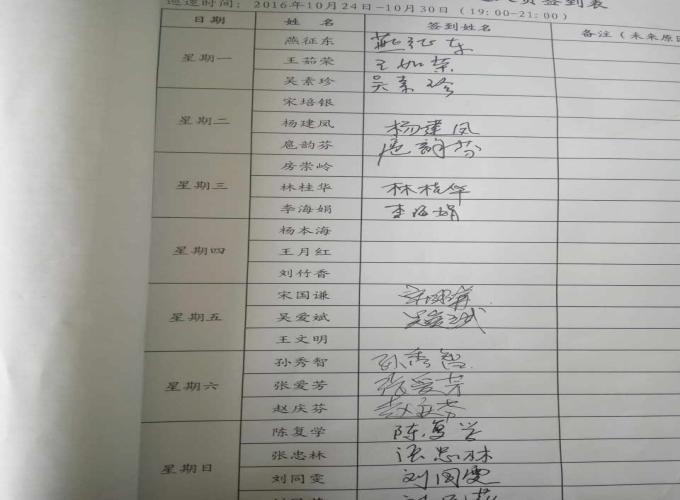 员签到表
巡逻时间：2016年10月24日-10月30日（19:00-21:00）
日期 姓名 签到姓名 备注（未来原因
星期一 燕征东 燕征东
王茹荣 王茹荣
吴素珍 吴素珍
星期二 宋培银
杨建凤 杨建凤
扈韵芬 扈韵芬
星期三 房崇岭
林桂华 林桂华
李海娟 李海娟
星期四 杨本海
王月红
刘竹香
星期五 宋国谦 宋国谦
吴爱斌 吴爱斌
王文明
星期六 孙秀智 孙秀智
张爱芳 张爱芳
赵庆芬 赵庆芬
星期日 陈复学 陈复学
张忠林 张忠林
刘同雯 刘同雯